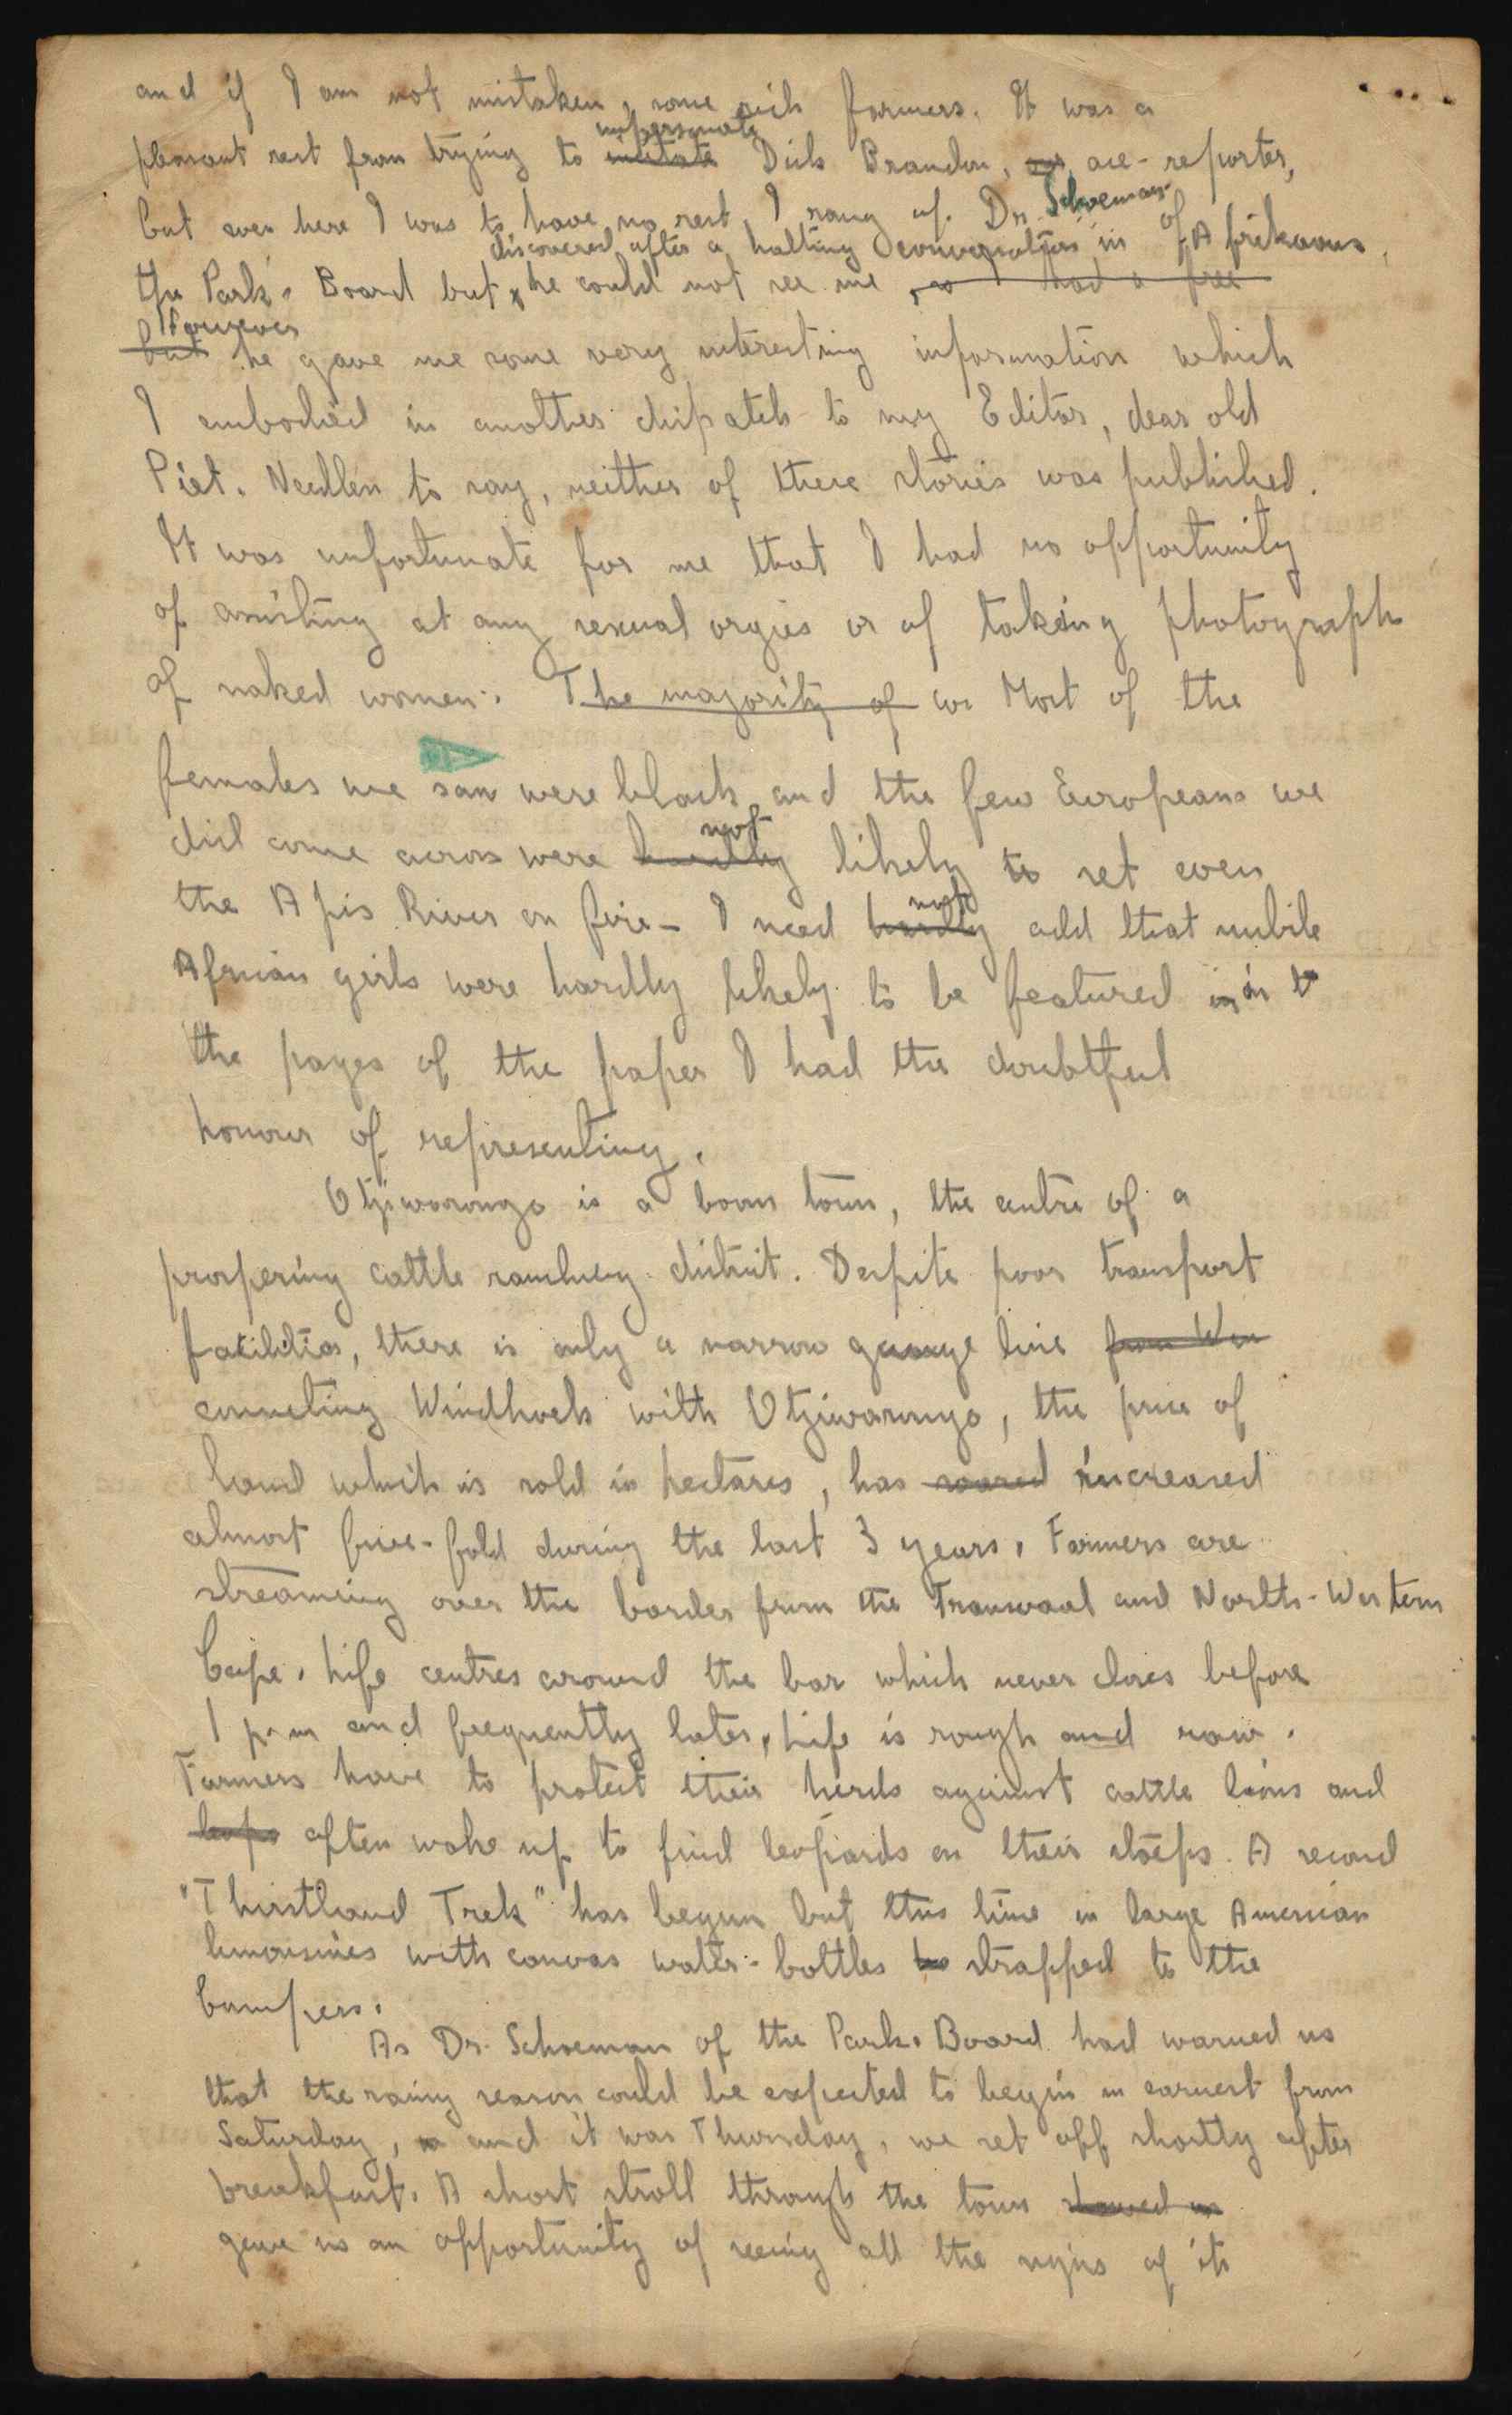 and if I am not mistaken, some rich farmers. It was a
impersonate
pleasant rest from trying to imitate Dick Brandon, ace-reporter,
but even here I was to have no rest, I rang up Dr. Schoeman of
discovered after a halting conversation in Afrikaans,
the Parks Board but he could not see me, so had a free
However
but he gave me some very interesting information which
I embodied in another dispatch to my Editor, dear old
Piet. Needless to say, neither of these stories was published.
It was unfortunate for me that I had no opportunity
of assisting at any sexual orgies or of taking photographs
of naked women. The majority of Most of the
females we saw were black and the few Europeans we
not
did come across were hardly likely to set even
not
the Apis River on fire - I need hardly add that nubile
African girls were hardly likely to be featured in in
the pages of the paper I had the doubtful
honour of representing.
Otjiwarongo is a boom town, the centre of a
prospering cattle ranching district. Despite poor transport
facilities, there is only a narrow gauge line from Win
connecting Windhoek with Otjiwarongo, the price of
land which is sold in hectares, has soared increased
almost five-fold during the last 3 years. Farmers are
streaming over the border from the Transvaal and North-Western
Cape. Life centres around the bar which never closes before
1 p.m and frequently later. Life is rough and raw.
Farmers have to protect their herds against cattle lions and
leops often wake up to find leopards on their stoeps. A second
"Thirstland Trek" has begun but this time in large American
limousines with canvas water-bottles strapped to the
bumpers.
As Dr. Schoeman of the Parks Board had warned us
that the rainy season could be expected to begin in earnest from
Saturday, and it was Thursday, we set off shortly after
breakfast. A short stroll through the town showed us
gave us an opportunity of seeing all the signs of its